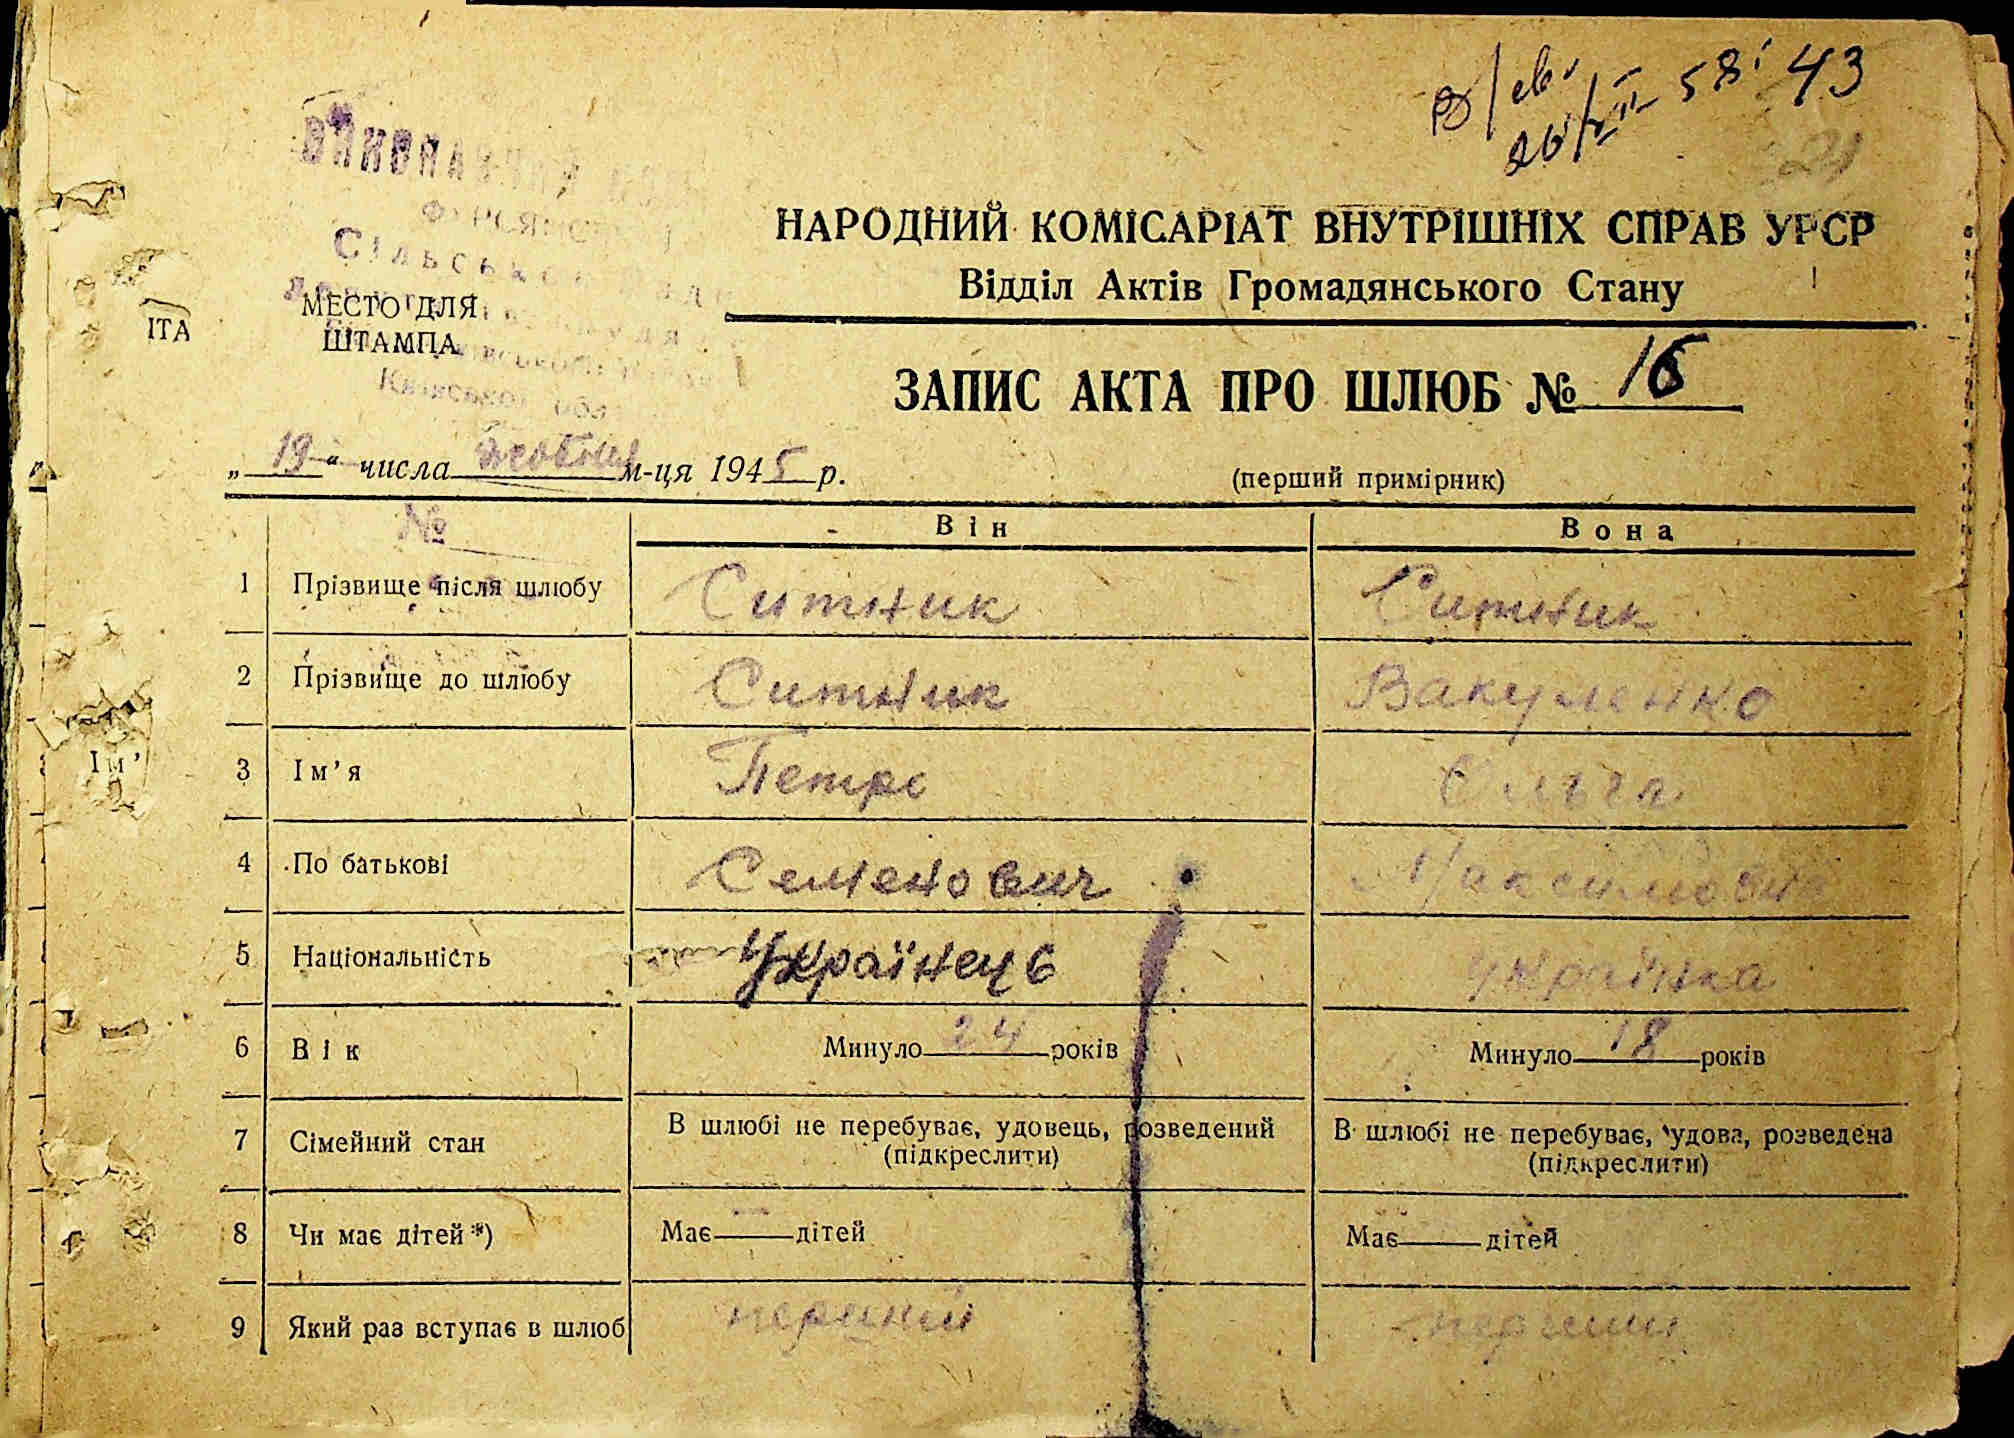 43
26/VII 58
21
НАРОДНИЙ КОМІСАРІАТ ВНУТРІШНІХ СПРАВ УРСР
Відділ Актів Громадянського Стану
МЕСТО ДЛЯ
ШТАМПА
ІТА
ЗАПИС АКТА ПРО ШЛЮБ № 16
„ 19 “ числа м-ця 1945 р.
(перший примірник)
№
Він Вона
1 Прізвище після шлюбу Ситник Ситник
2 Прізвище до шлюбу Ситник Вакуленко
Ім'
3 Ім'я Петро Ольга
4 По батькові Семенович Максимовна
5 Національність Українець українка
6 Вік Минуло 24 років Минуло 18 років
7 Сімейний стан В шлюбі не перебуває, удовець, розведений (підкреслити) В шлюбі не перебуває, удова, розведена (підкреслити)
8 Чи має дітей *) Має — дітей Має — дітей
9 Який раз вступає в шлюб перший перший